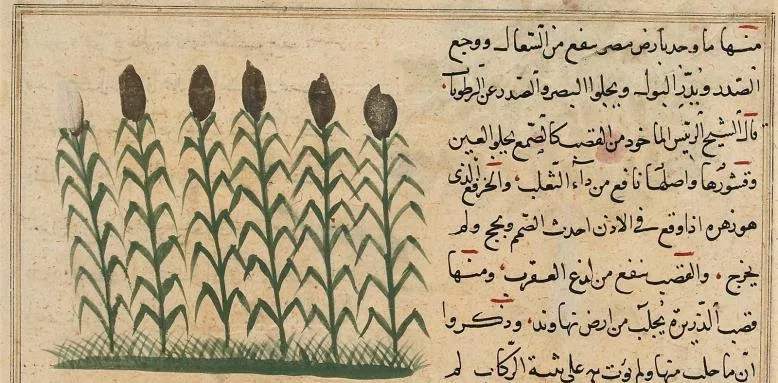 منها ما وجد بارض مصر ينفع من السعال ووجع
الصدر ويدر البول ويجلوا البصر والصدر عن الرطوبات
قال الشيخ الرئيس الماخوذ من القصب كالصمغ يجلو العين
وقشورها واصلها نافع من داء الثعلب والذى
هو زهره اذا وقع فى الاذن احدث الصمم ولم
يخرج والقصب ينفع من لدغ العقرب ومنها
قصب الذريرة يجلب من ارض نهاوند وذكروا
ان ما جلب منها ولم يؤت به على ثنية الركاب لم